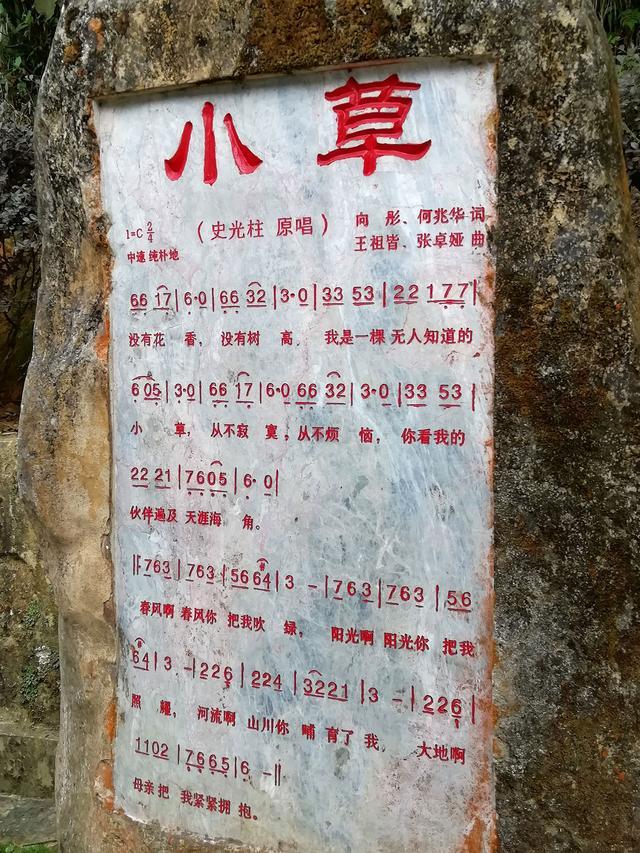 小草
1=C 2/4
(史光柱 原唱)
向 彤、何兆华 词
中速 纯朴地
王祖皆、张卓娅 曲
66 17|6·0|66 32|3·0|33 53|22 177|
没有花 香，没有树 高， 我是一棵 无人知道的
6 05|3·0|66 17|6·0 66 32|3·0|33 53|
小 草，从不寂 寞，从不烦 恼， 你看我的
22 21|7605|6·0|
伙伴遍及 天涯海 角。
‖763|763|56 64|3 -|763|763|56
春风啊 春风你 把我吹 绿， 阳光啊 阳光你 把我
64|3 -|226|224|3221|3 -|226|
照 耀， 河流啊 山川你 哺 育了 我， 大地啊
1102|7665|6 -‖
母亲把 我紧紧拥 抱。